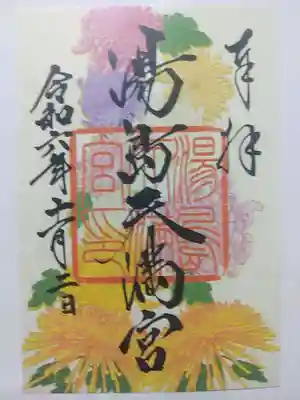 奉拝
湯島天満宮
湯島
宮印
令和六年十一月二日